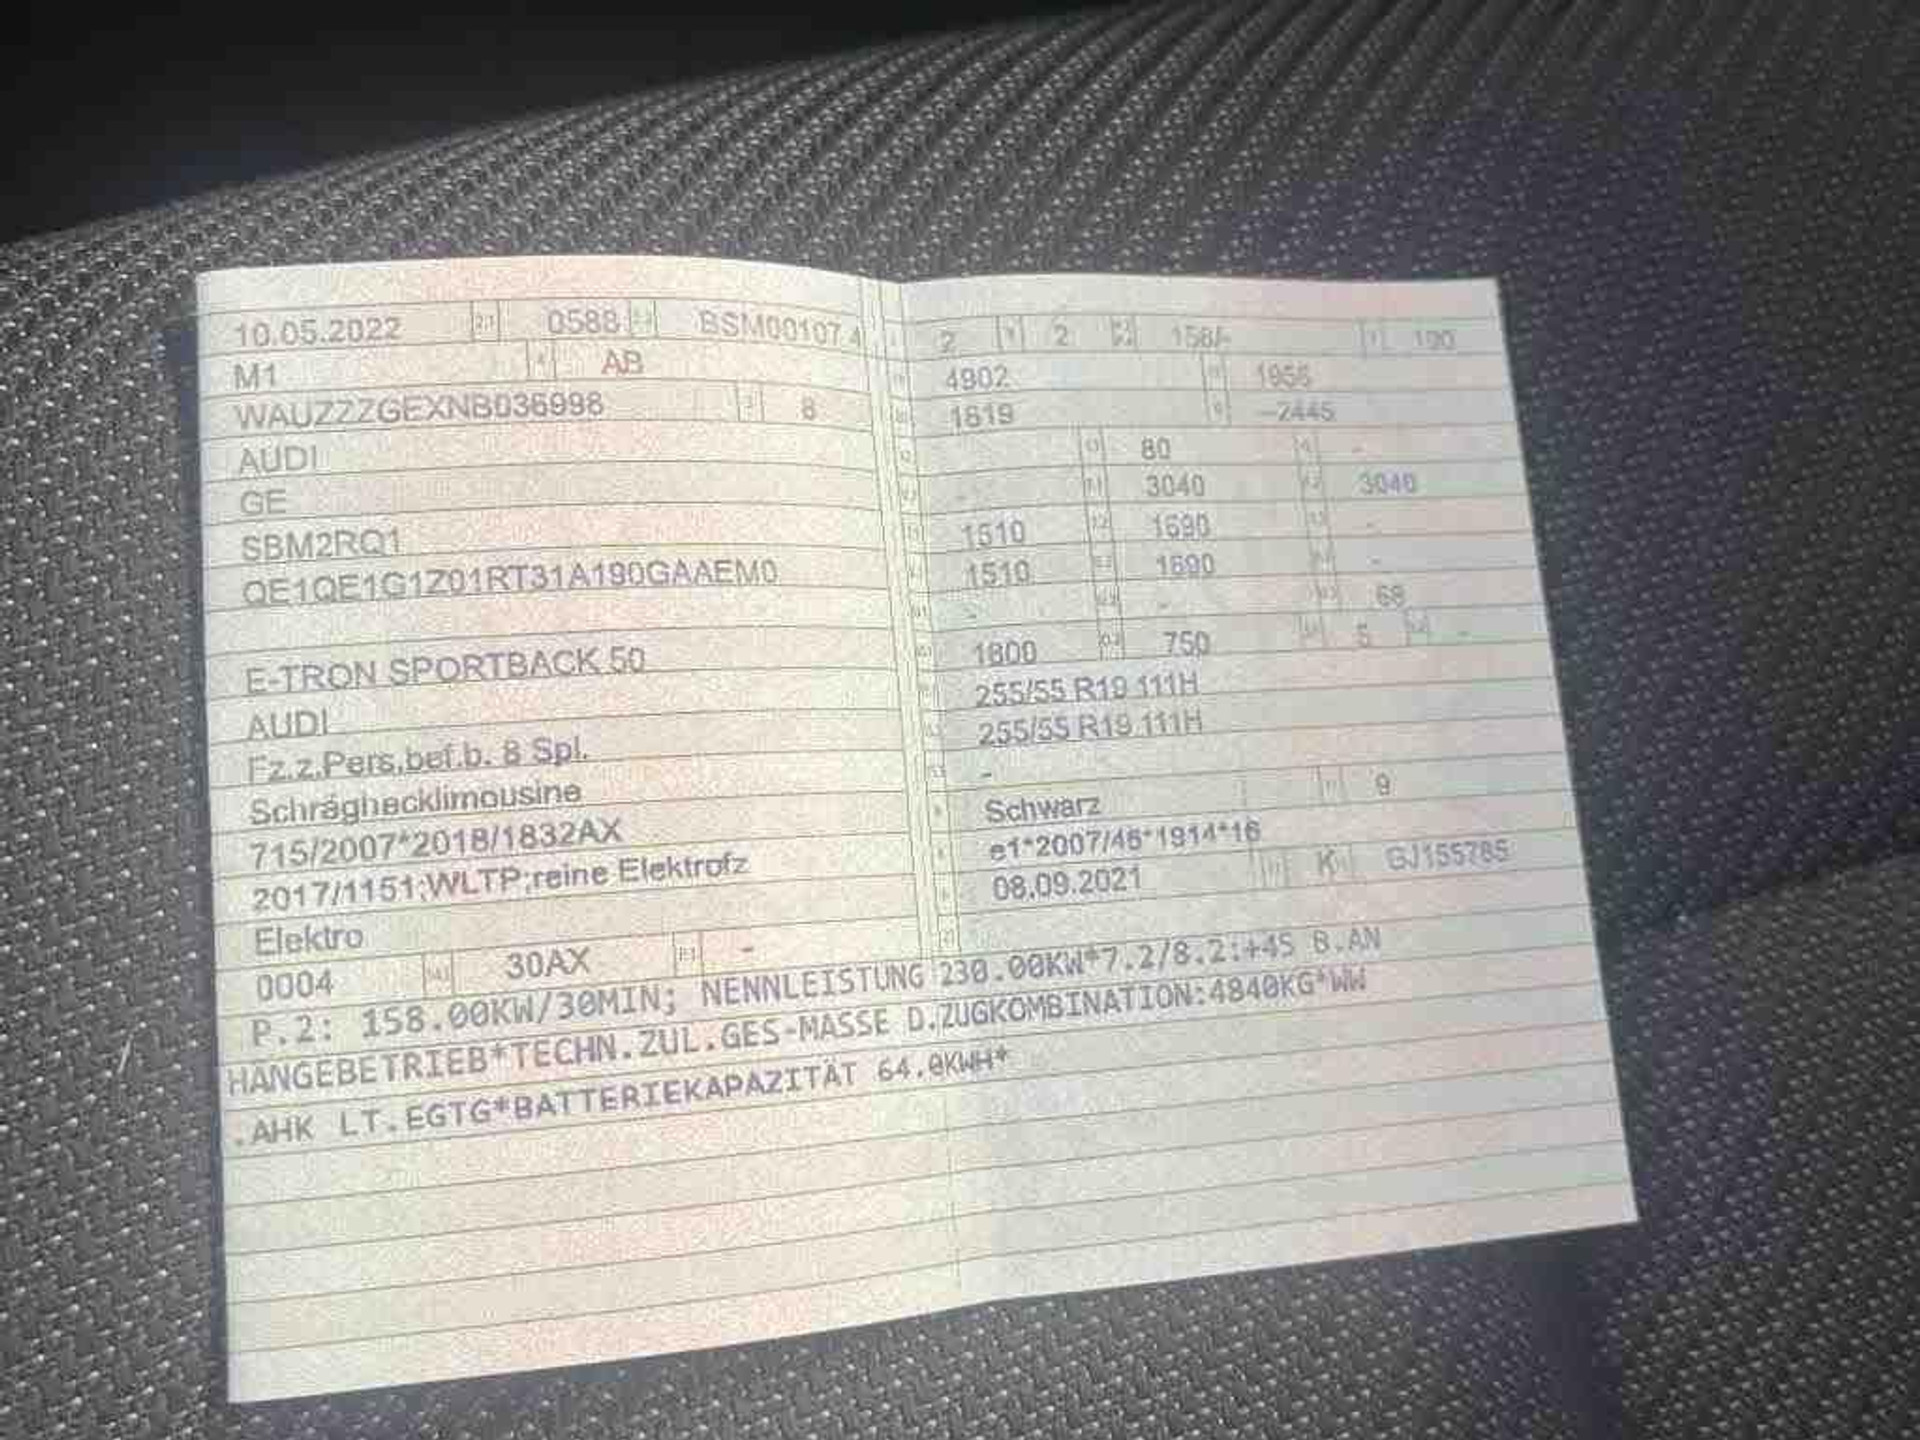 10.05.2022 0588 BSM00107 4
M1 AB
WAUZZZGEXNB036998 8
AUDI
GE
SBM2RQ1
QE1QE1G1Z01RT31A190GAAEM0
E-TRON SPORTBACK 50
AUDI
Fz.z.Pers.bef.b. 8 Spl.
Schräghecklimousine
715/2007*2018/1832AX
2017/1151;WLTP;reine Elektrofz
Elektro
0004 30AX -
2 2 158/- 190
4902
1619 -2445
80 -
- 3040 3040
1510 1690 -
1510 1690 -
- - 68
1800 750 5 -
255/55 R19 111H
255/55 R19 111H
-
Schwarz 9
e1*2007/46*1914*16
08.09.2021 K GJ155785
P.2: 158.00KW/30MIN; NENNLEISTUNG 230.00KW*7.2/8.2:+45 B.AN
HÄNGEBETRIEB*TECHN.ZUL.GES-MASSE D.ZUGKOMBINATION:4840KG*WW
.AHK LT.EGTG*BATTERIEKAPAZITÄT 64.0KWH*